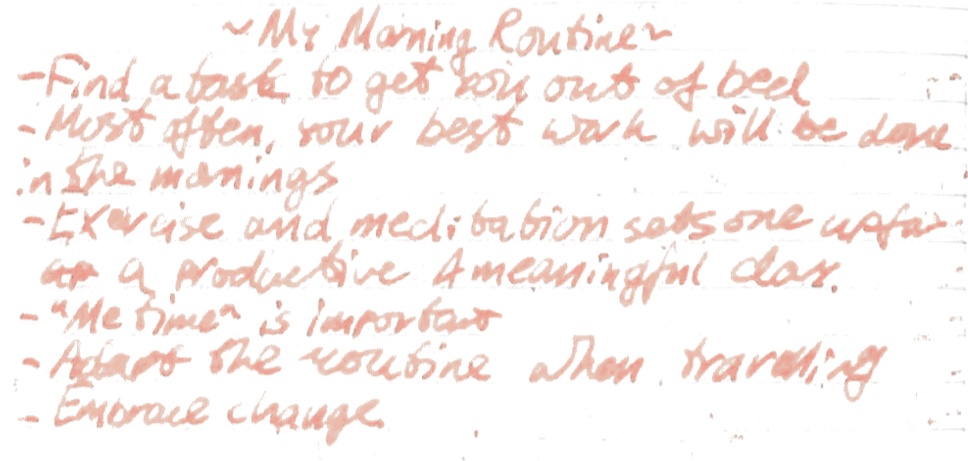 ~My Morning Routine~
-Find a task to get you out of bed
-Most often, your best work will be done
in the mornings
-Exercise and meditation sets one up for
a productive & meaningful day.
-"Me time" is important
-Adapt the routine when traveling
-Embrace change